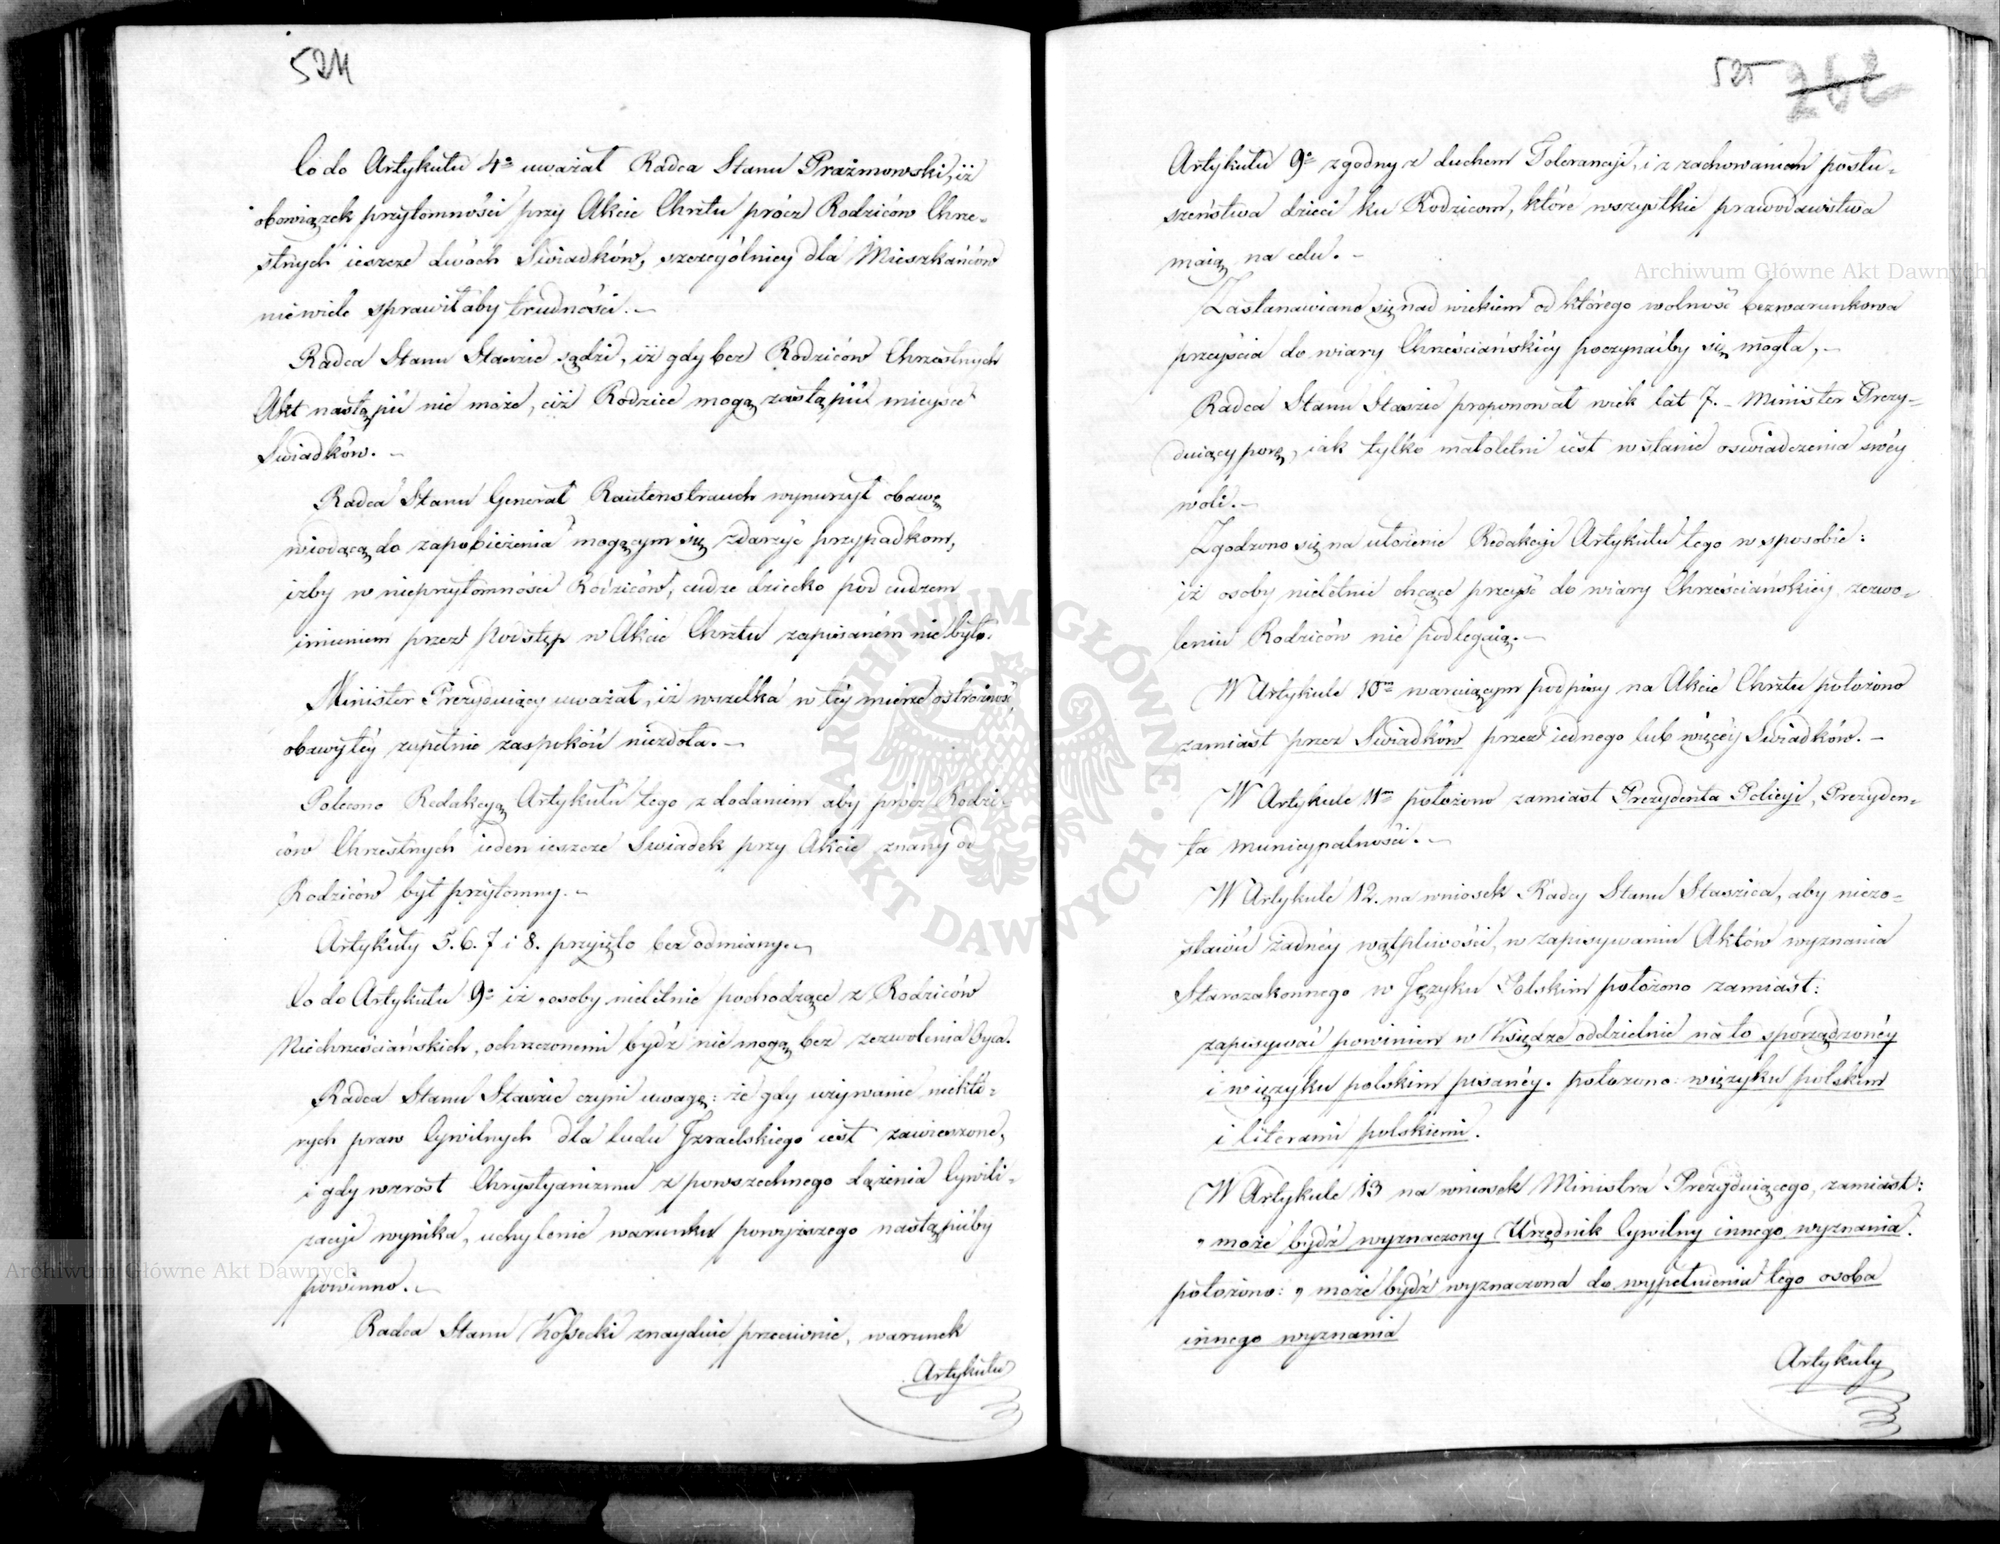 524
Co do Artykułu 4o uważał Radca Stanu Prażmowski, iż
obowiązek przytomności przy Akcie Chrztu prócz Rodziców Chrze-
stnych ieszcze dwóch Swiadków, szczególniey dla Mieszkańców
niewiele sprawiłaby trudności. –
Radca Stanu Staszic sądzi, iż gdy bez Rodziców Chrzestnych
Akt nastąpić nie może, ciż Rodzice mogą zastąpić mieysce
Swiadków. –
Radca Stanu Generał Rautenstrauch wynurzył obawę
wiodącą do zapobieżenia mogącym się zdarzyć przypadkom,
iżby w nieprzytomności Rodziców, cudze dziecko pod cudzem
imieniem przez Podstęp w Akcie Chrztu zapisaném nie było.
Minister Prezyduiący uważał, iż wszelka w téy mierze ostrożność,
obawy téy zupełnie zaspokoić niezdoła. –
Polecono Redakcyą Artykułu tego z dodaniem aby prócz Rodzi-
ców Chrzestnych ieden ieszcze Swiadek przy Akcie znany od
Rodziców był przytomny. –
Artykuły 5. 6. 7 i 8. przyięto bez odmiany. –
Co do Artykułu 9o iż „osoby nieletnie pochodzące z Rodziców
Niechrześciańskich, ochrzczonemi bydź nie mogą bez zezwolenia Oyca.
Radca Stanu Staszic czyni uwagę: że gdy używanie niektó-
rych praw Cywilnych dla ludu Izraelskiego iest zawieszone,
i gdy wzrost Chrystyanizmu z powszechnego dążenia Cywili-
zacyi wynika, uchylenie warunku powyższego nastąpićby
powinno. –
Radca Stanu Kossecki znayduie przeciwnie, warunek
Artykułu
525 262
Artykułu 9o zgodny z duchem Tolerancyi, i z zachowaniem posłu-
szeństwa dzieci ku Rodzicom, które wszystkie prawodawstwa
maią na celu. –
Zastanawiano się nad wiekiem od którego wolność bezwarunkowa
przeyścia do wiary Chrześciańskiéy poczynaćby się mogła, –
Radca Stanu Staszic proponował wiek lat 7. – Minister Prezy-
duiący porę, iak tylko małoletni iest w stanie oswiadczenia swéy
woli. –
Zgodzono się na ułożenie Redakcyi Artykułu tego w sposobie:
iż osoby nieletnie chcące przeyść do wiary Chrześciańskiéy, zezwo-
leniu Rodziców nie podlegaią. –
W Artykule 10m waruiącym podpisy na Akcie Chrztu położono
zamiast przez Swiadków przez iednego lub więcéy Swiadków. –
W Artykule 11m położono zamiast Prezydenta Policyi, Prezyden-
ta Municypalności. –
W Artykule 12. na wniosek Radcy Stanu Staszica, aby niezo-
stawić żadnéy wątpliwości, w zapisywaniu Aktów wyznania
Starozakonnego w Języku Polskim położono zamiast:
zapisywać powinien w Księdze oddzielnie na to sporządzonéy
i w ięzyku polskim pisanéy. położono: w ięzyku polskim
i literami polskiemi.
W Artykule 13 na wniosek Ministra Prezyduiącego, zamiast:
„może bydź wyznaczony Urzędnik Cywilny innego wyznania.
położono: „może bydź wyznaczona do wypełnienia tego osoba
innego wyznania
Artykuły
Archiwum Główne Akt Dawnych
Archiwum Główne Akt Dawnych
ARCHIWUM GŁÓWNE · AKT DAWNYCH ·